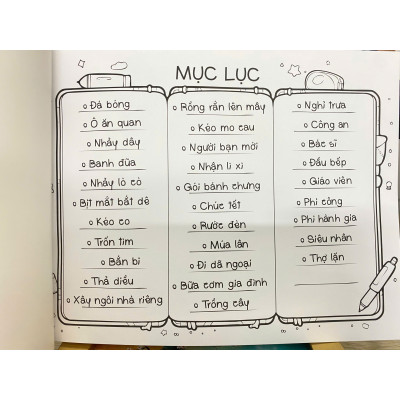 MỤC LỤC
Đá bóng
Ô ăn quan
Nhảy dây
Banh đũa
Nhảy lò cò
Bịt mắt bắt dê
Kéo co
Trốn tìm
Bắn bi
Thả diều
Xây ngôi nhà riêng
Rồng rắn lên mây
Kéo mo cau
Người bạn mới
Nhận lì xì
Gói bánh chưng
Chúc tết
Rước đèn
Múa lân
Đi dã ngoại
Bữa cơm gia đình
Trồng cây
Nghỉ trưa
Công an
Bác sĩ
Đầu bếp
Giáo viên
Phi công
Phi hành gia
Siêu nhân
Thợ lặn